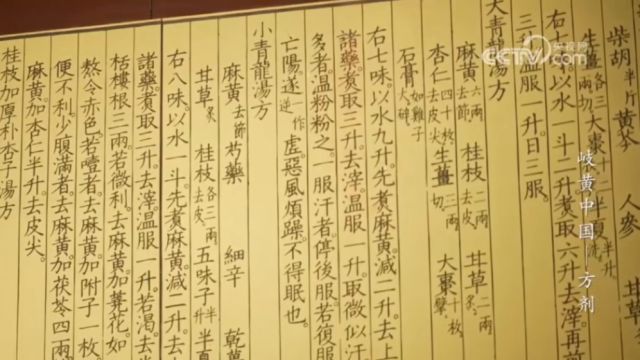 柴胡半斤 黄芩 人參
生薑各三兩切 大棗十二 半夏
右七味。以水一斗二升。煮取六升。去滓。再
三升。温服一升。日三服。
大青龍湯方
麻黄六兩去節 桂枝二兩去皮 甘草二兩
杏仁四十枚去皮尖 生薑三兩切 大棗十枚擘
石膏如雞子大碎
右七味。以水九升。先煮麻黄減二升。去上
諸藥。煮取三升。去滓。温服一升。取微似汗
多者。温粉粉之。一服汗者。停後服。若復服
亡陽。遂一作逆虛。惡風煩躁。不得眠也。
小青龍湯方
麻黄去節 芍藥 細辛 乾薑
甘草炙 桂枝各三兩去皮 五味子半升 半夏
右八味。以水一斗。先煮麻黄減二升。去
諸藥。煮取三升。去滓。温服一升。若渴。去半
栝樓根三兩。若微利。去麻黄加蕘花。如
熬令赤色。若噎者。去麻黄加附子一枚
便不利。少腹滿者。去麻黄加茯苓四兩
麻黄。加杏仁半升。去皮尖。
桂枝加厚朴杏子湯方
CCTV.com 央视网
岐黄中国——方剂